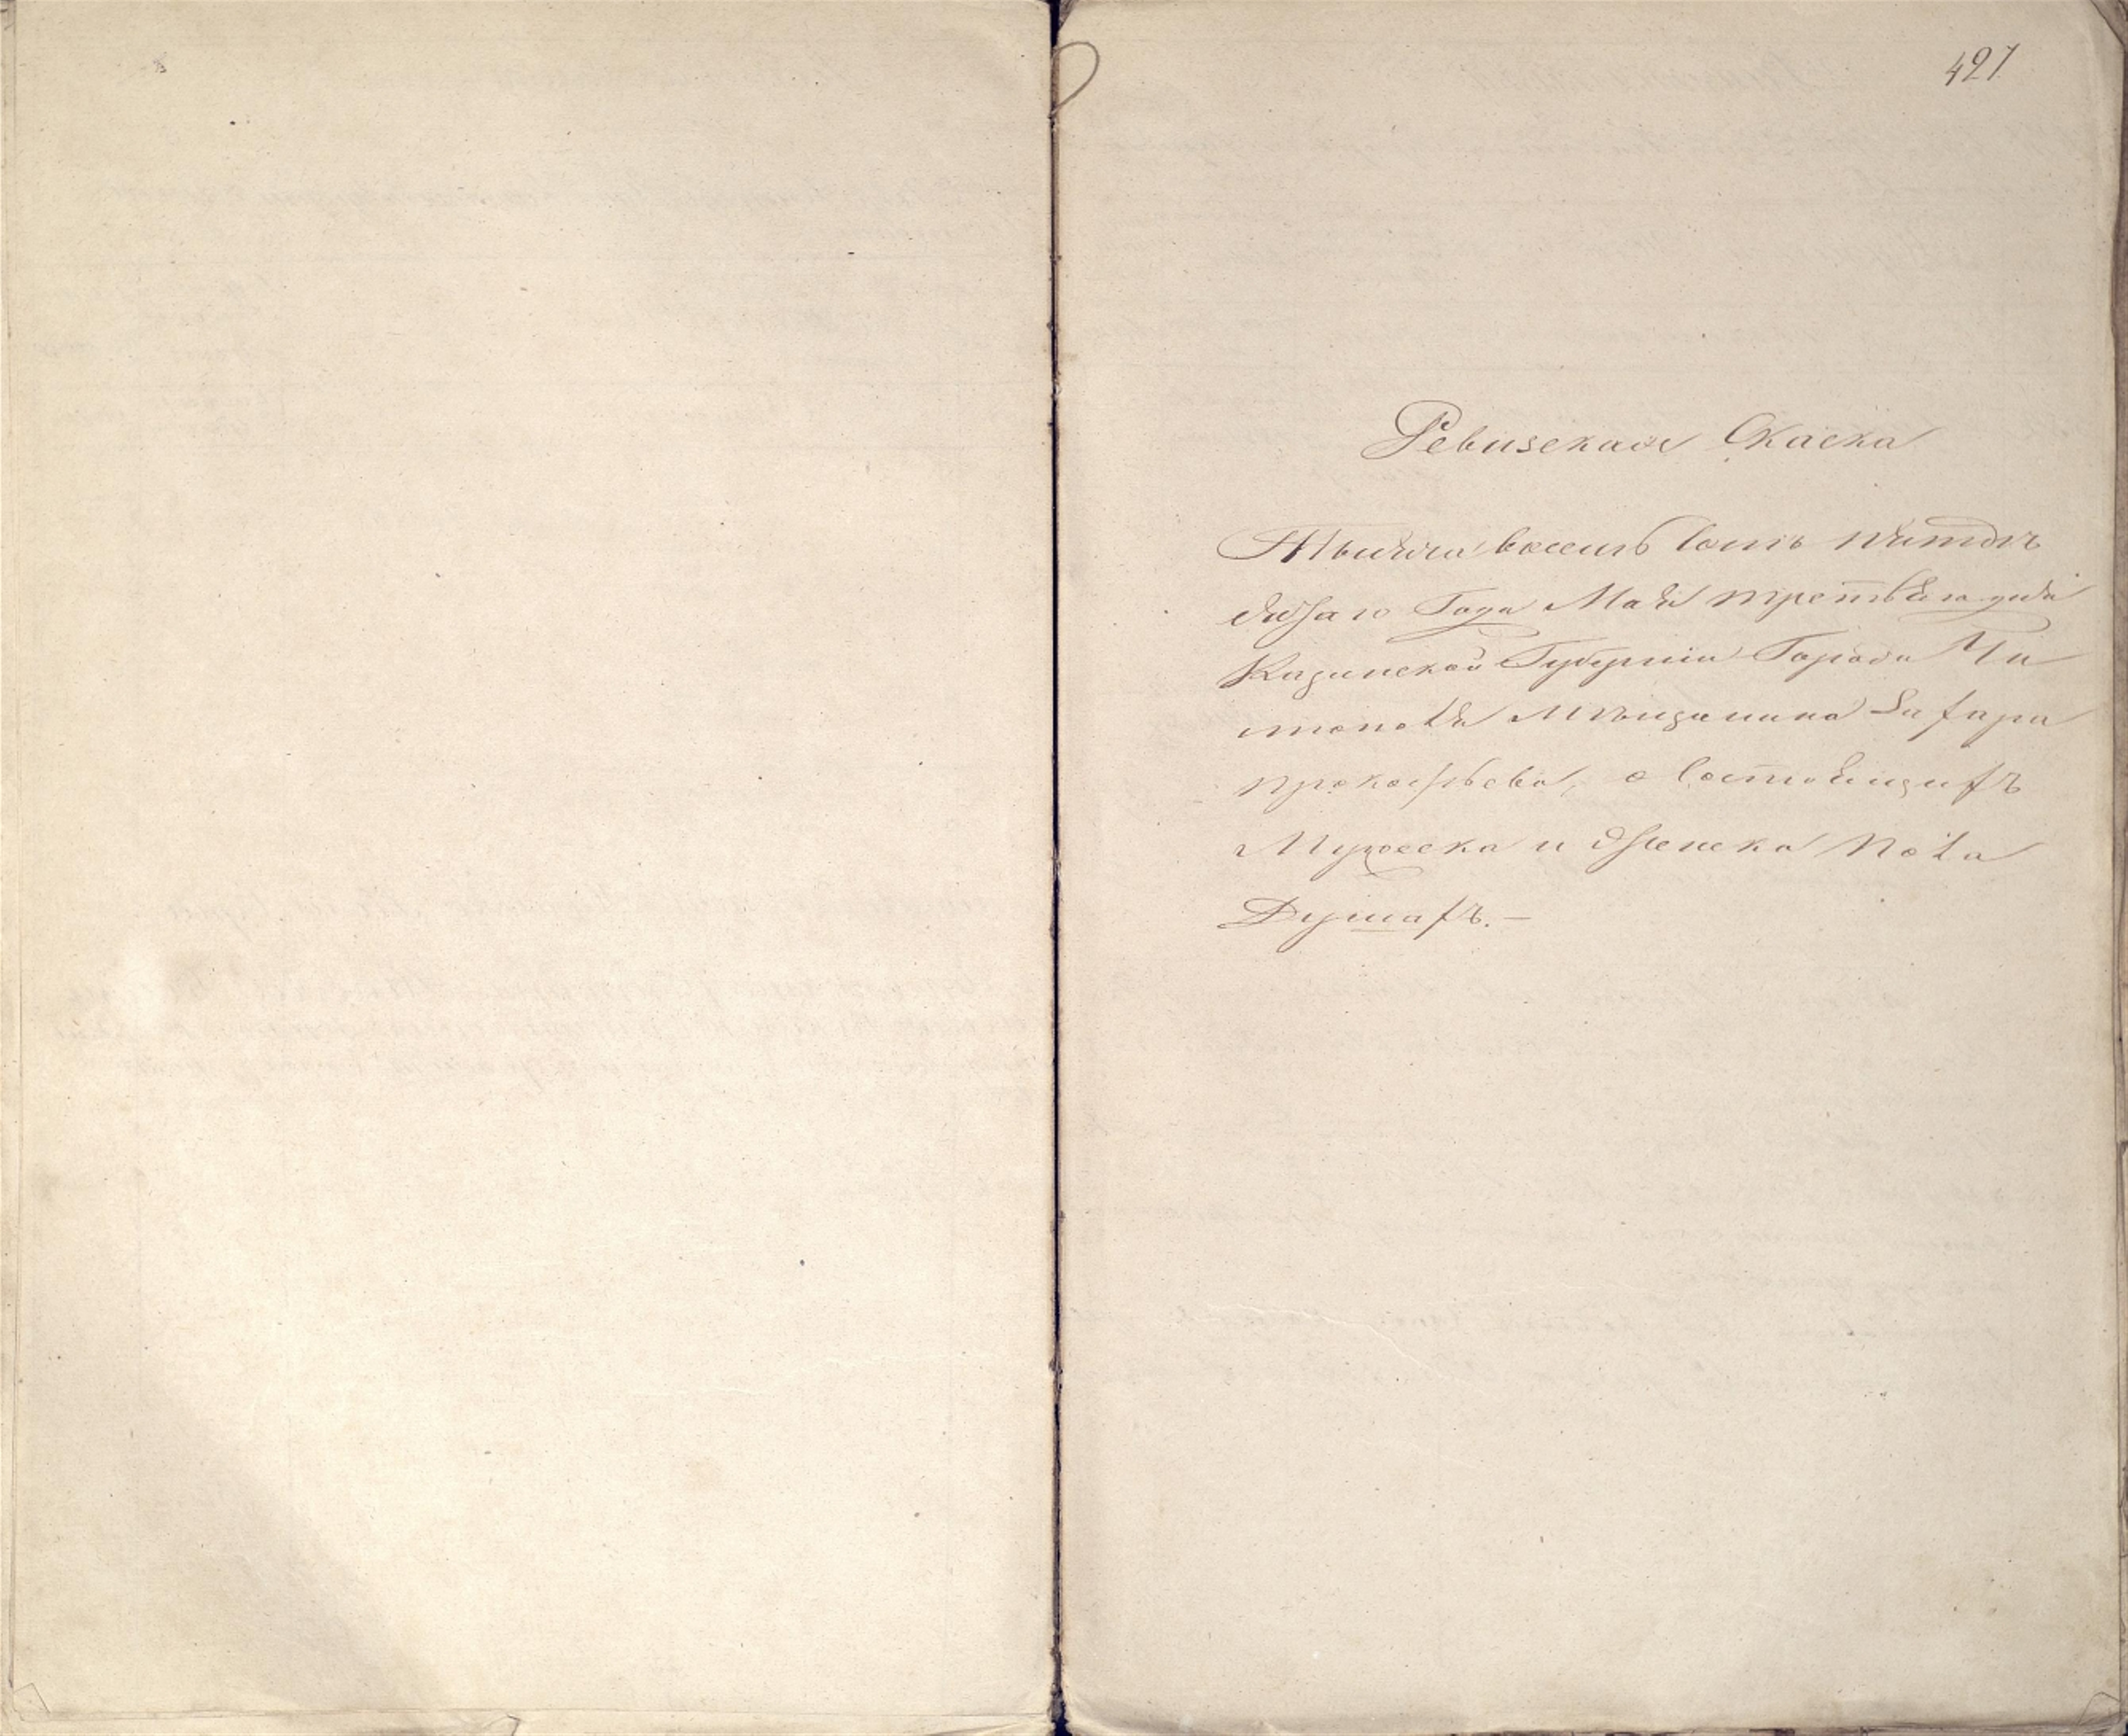 427
Ревизская Скаска
Тысяча восемь сотъ пятдѣ
сятаго Года Мая третьяго дня
Казанской Губерніи Города Чи
стополя Мѣщанина Захара
прокофьева, о состоящихъ
Мужеска и женска пола
Душахъ.—